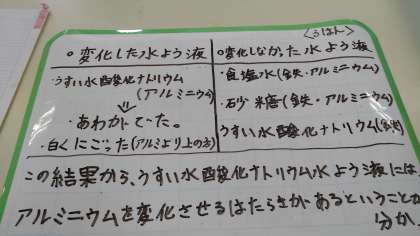 <うはん>
○変化した水よう液
・うすい水酸化ナトリウム
(アルミニウム)
⇓
・あわがでた。
・白くにごった(アルミより上の方)
○変化しなかった水よう液
・食塩水(鉄・アルミニウム)
・砂糖(鉄・アルミニウム)
うすい水酸化ナトリウム(鉄)
この結果から、うすい水酸化ナトリウム水よう液には、
アルミニウムを変化させるはたらきがあるということが
分か